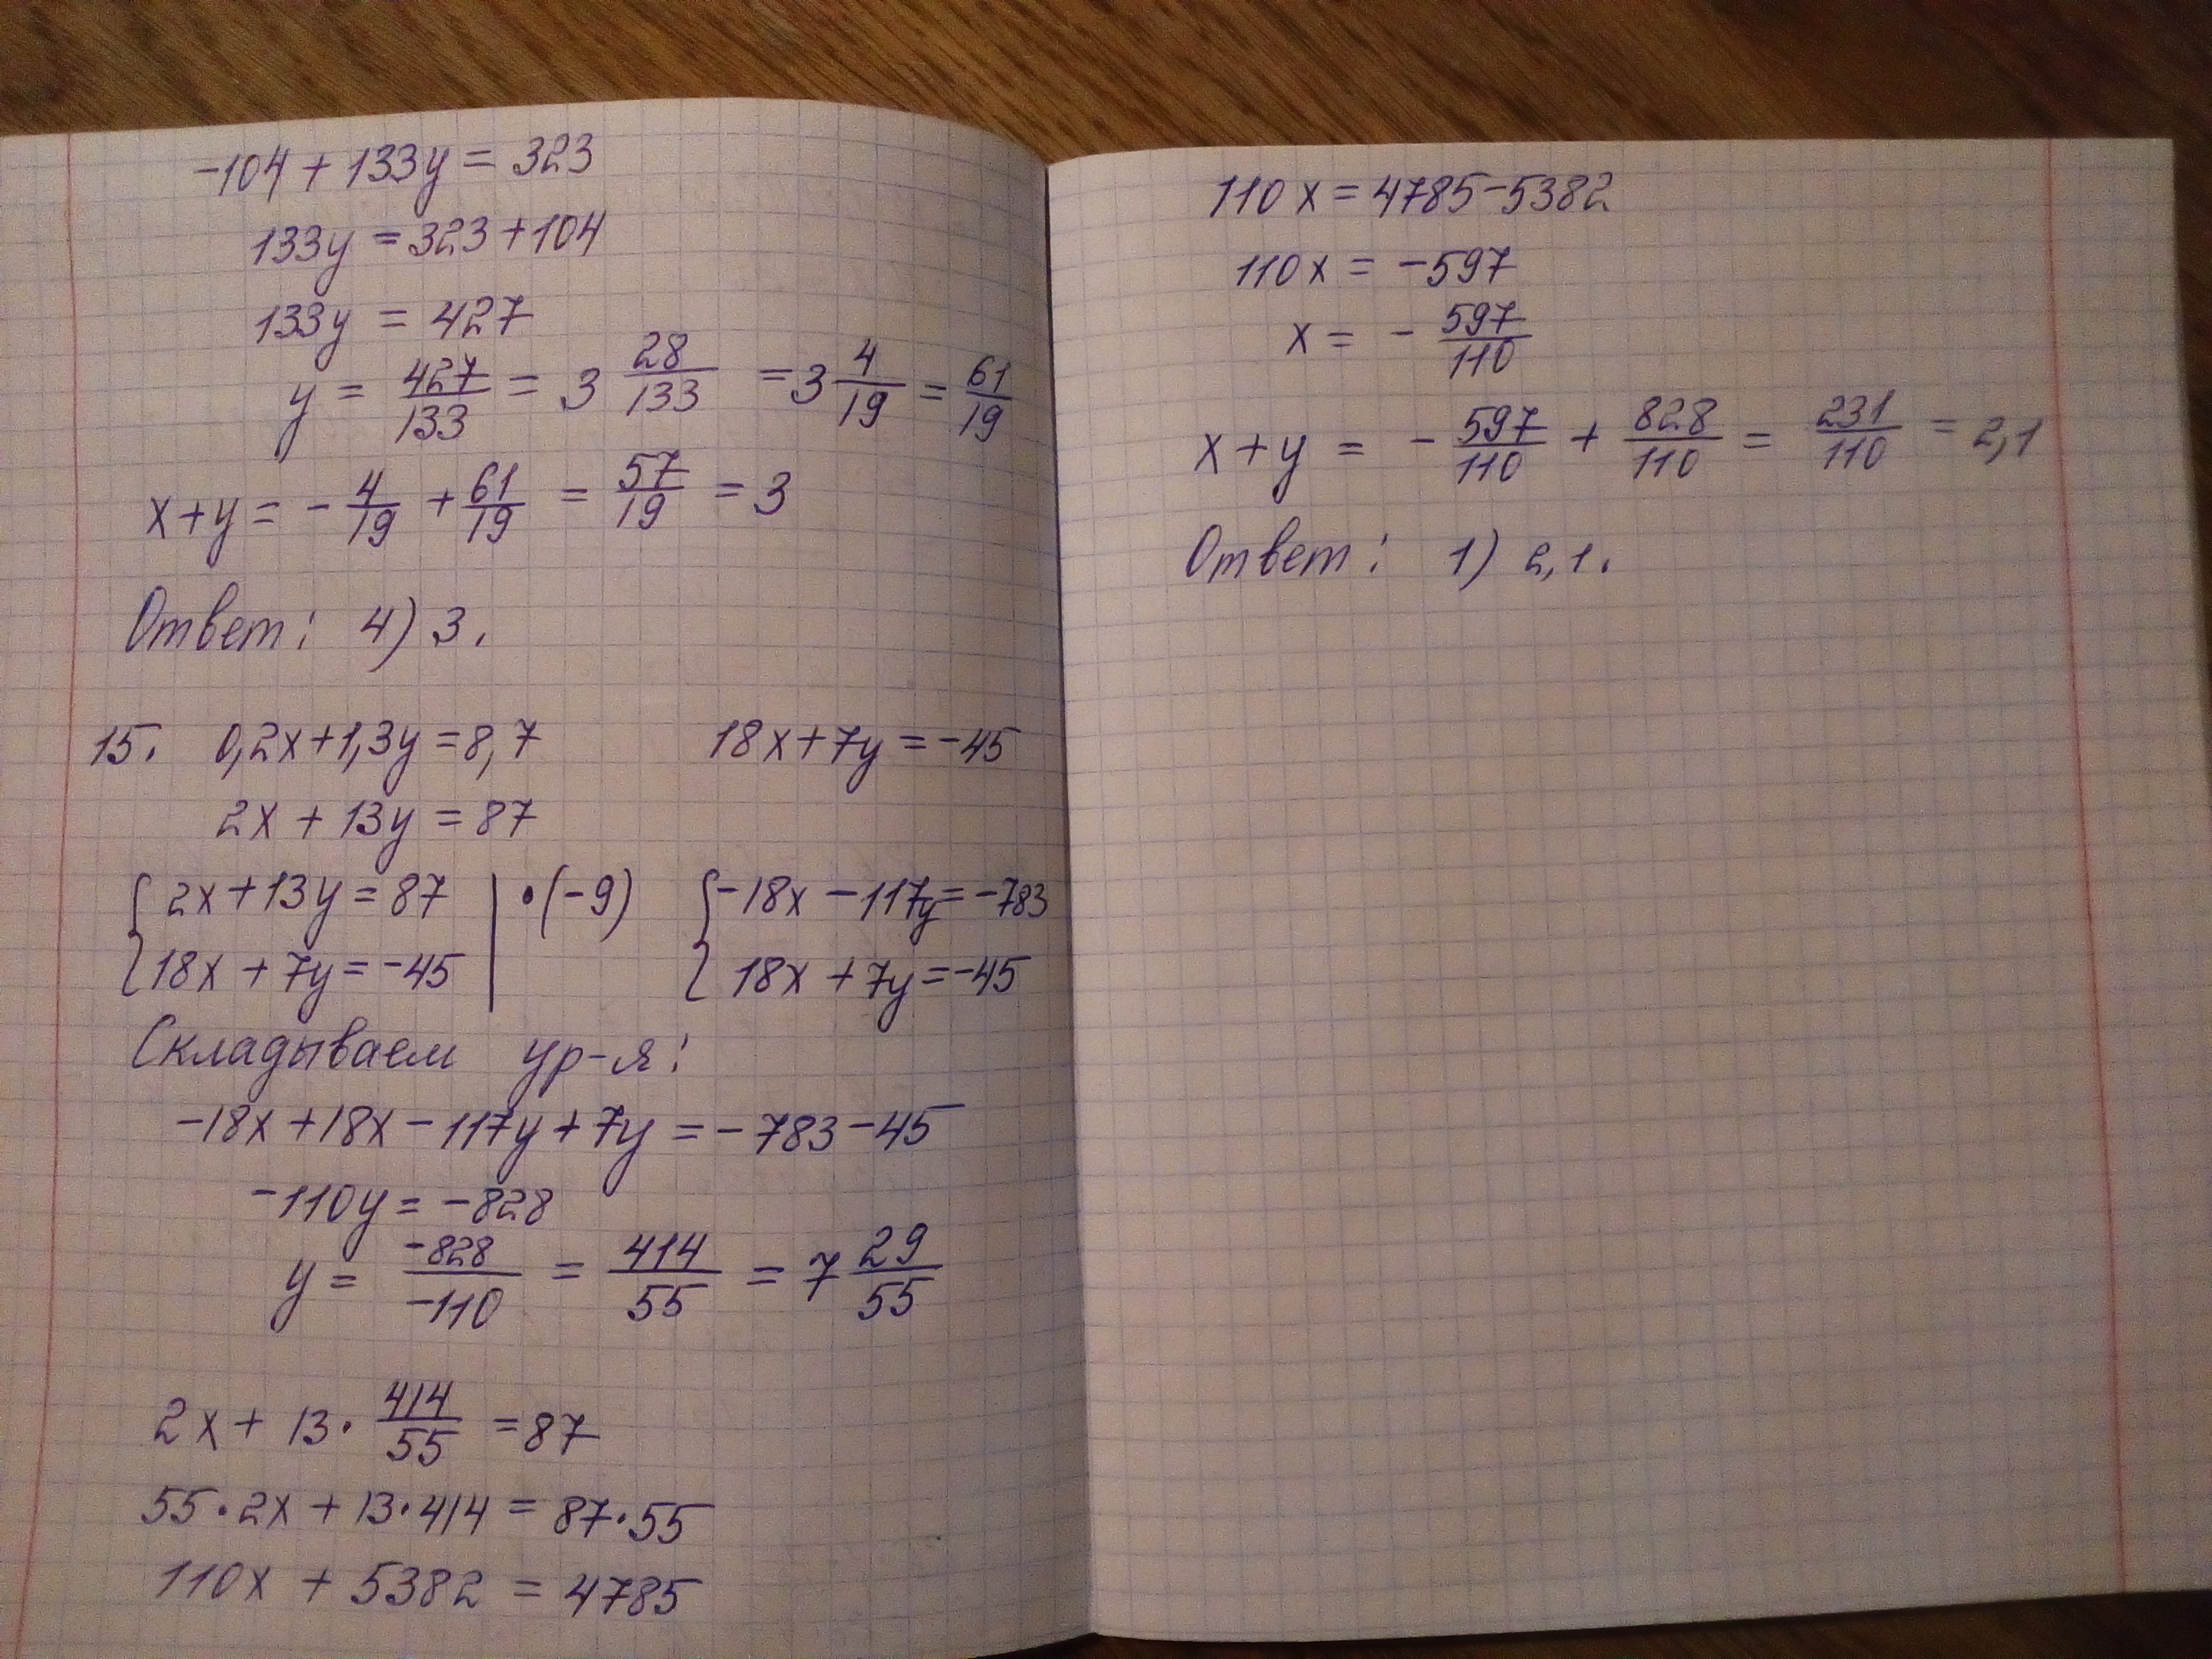 -104 + 133y = 323
133y = 323 + 104
133y = 427
y = 427/133 = 3 28/133 = 3 4/19 = 61/19
x + y = - 4/19 + 61/19 = 57/19 = 3
Ответ: 4) 3.
15. 0,2x + 1,3y = 8,7 18x + 7y = -45
2x + 13y = 87
{ 2x + 13y = 87 | • (-9) { -18x - 117y = -783
18x + 7y = -45 18x + 7y = -45
Складываем ур-я:
-18x + 18x - 117y + 7y = -783 - 45
-110y = -828
y = -828/-110 = 414/55 = 7 29/55
2x + 13 · 414/55 = 87
55 · 2x + 13 · 414 = 87 · 55
110x + 5382 = 4785
110x = 4785 - 5382
110x = -597
x = - 597/110
x + y = - 597/110 + 828/110 = 231/110 = 2,1
Ответ: 1) 2,1.